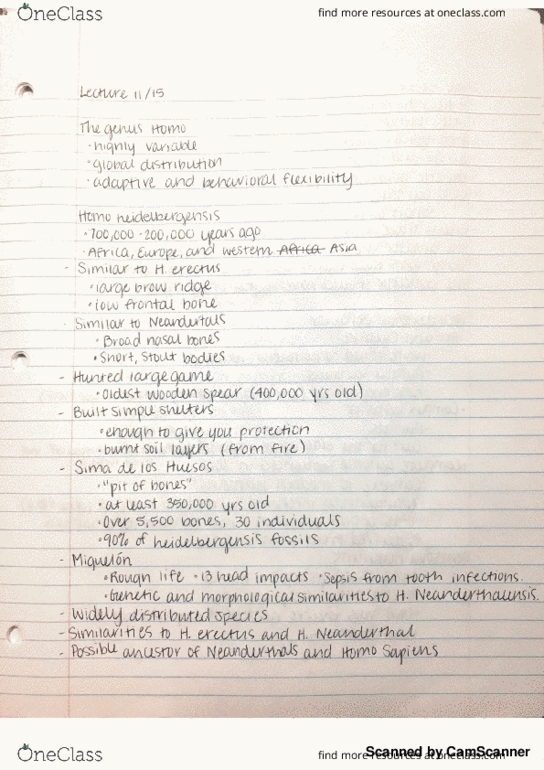 OneClass
find more resources at oneclass.com
Lecture 11/15
The genus Homo
• highly variable
• global distribution
• adaptive and behavioral flexibility
Homo heidelbergensis
• 700,000 - 200,000 years ago
• Africa, Europe, and western Africa Asia
- Similar to H. erectus
• large brow ridge
• low frontal bone
- Similar to Neandertals
• Broad nasal bones
• Short, stout bodies
- Hunted large game
• oldest wooden spear (400,000 yrs old)
- Built simple shelters
• enough to give you protection
• burnt soil layers (from fire)
- Sima de los Huesos
• "pit of bones"
• at least 350,000 yrs old
• Over 5,500 bones, 30 individuals
• 90% of heidelbergensis fossils
- Miguelón
• Rough life • 13 head impacts • Sepsis from tooth infections.
• Genetic and morphological similarities to H. Neanderthalensis.
- Widely distributed species
- Similarities to H. erectus and H. Neanderthal
- Possible ancestor of Neanderthals and Homo Sapiens
OneClass
find more resources at oneclass.com
Scanned by CamScanner